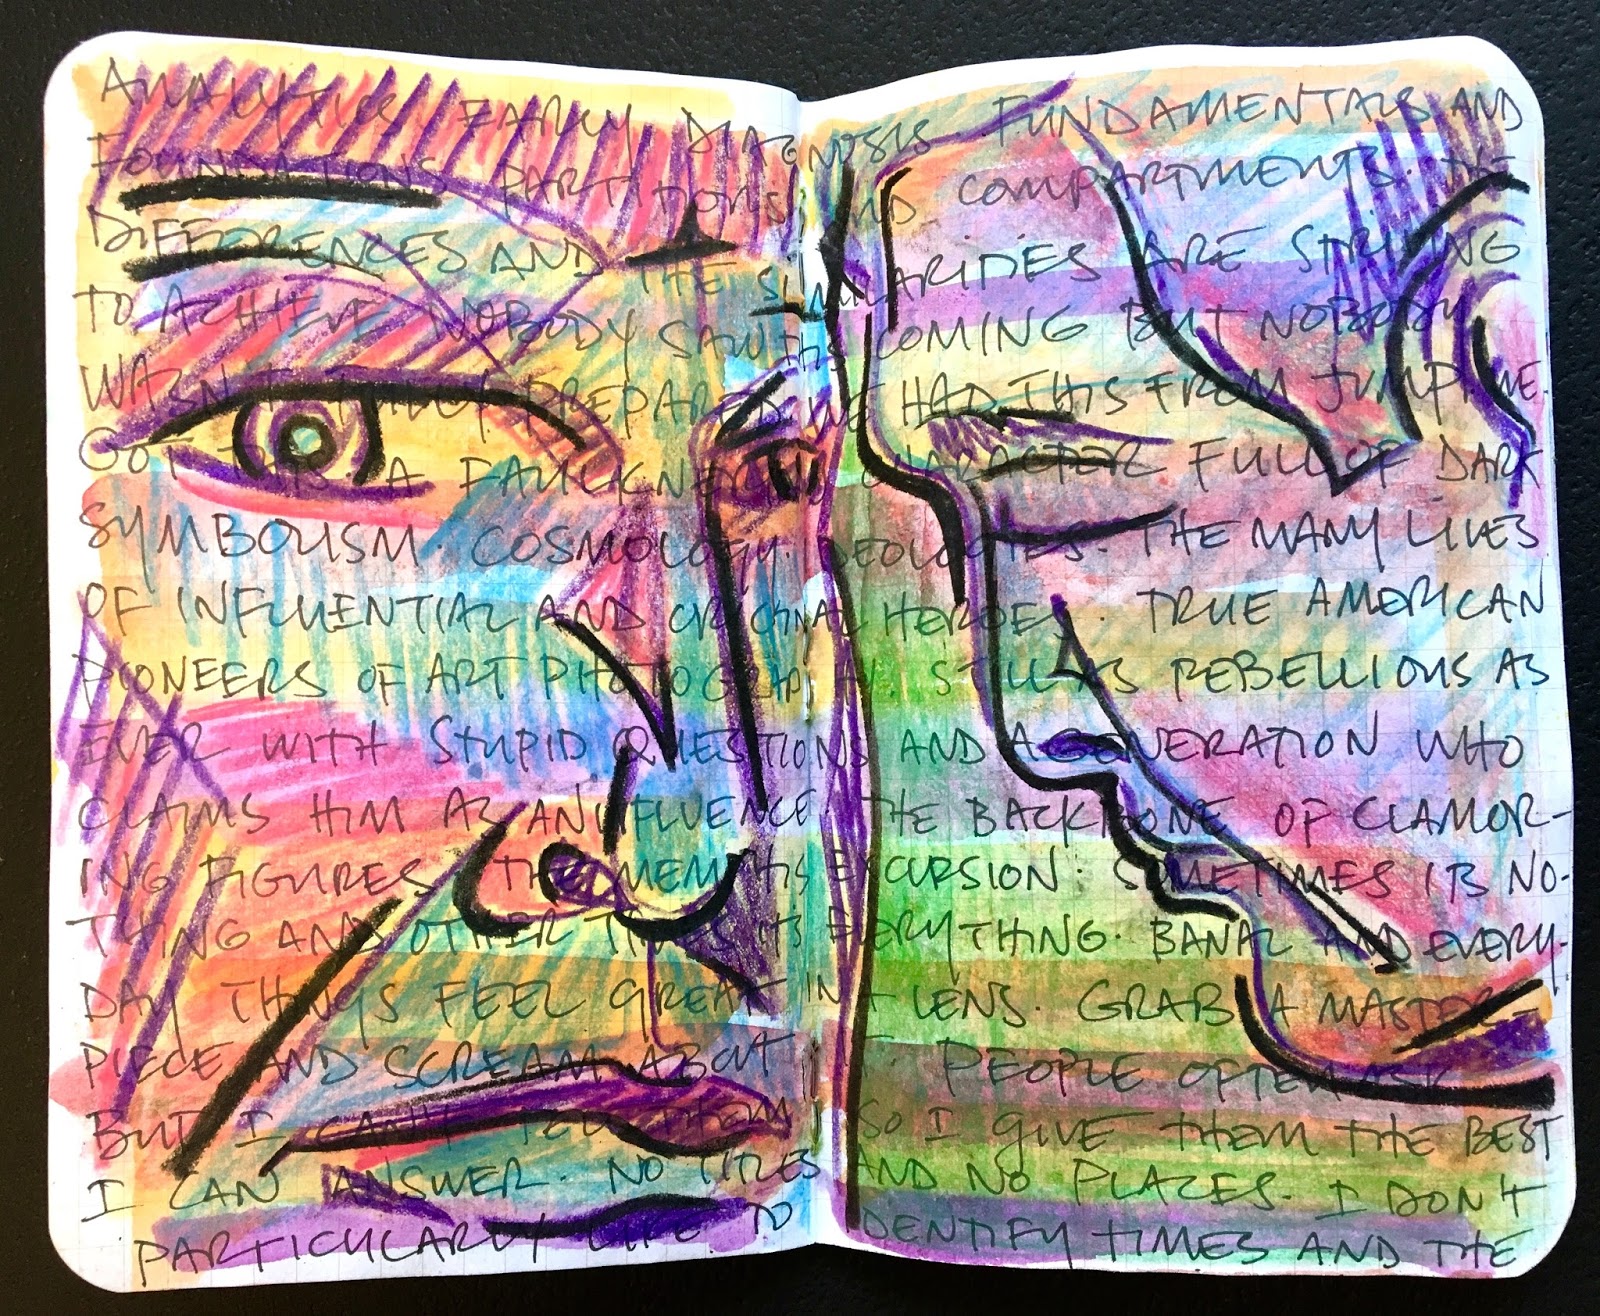 ANALYTICS EARLY DIAGNOSIS. FUNDAMENTALS AND
FOUNDATIONS PARTITIONS AND COMPARTMENTS. THE
DIFFERENCES AND THE SIMILARITIES ARE STRIVING
TO ACHIEVE NOBODY SAW THIS COMING BUT NOBODY
WASN'T FULLY PREPARED WE HAD THIS FROM JUMP WE
GOT THIS. A FAULKNERIAN CHARACTER FULL OF DARK
SYMBOLISM. COSMOLOGY. IDEOLOGIES. THE MANY LIVES
OF INFLUENTIAL AND ORIGINAL HEROES. TRUE AMERICAN
PIONEERS OF ART PHOTOGRAPHY. STILL AS REBELLIOUS AS
EVER WITH STUPID QUESTIONS AND A GENERATION WHO
CLAIMS HIM AS AN INFLUENCE. THE BACKBONE OF CLAMOR-
ING FIGURES. THE MEMPHIS EXCURSION. SOMETIMES IT'S NO-
THING AND OTHER TIMES IT'S EVERYTHING. BANAL AND EVERY-
DAY THINGS FEEL GREAT IN A LENS. GRAB A MASTER-
PIECE AND SCREAM ABOUT IT. PEOPLE OFTEN ASK
BUT I CAN'T TELL THEM SO I GIVE THEM THE BEST
I CAN ANSWER. NO TITLES AND NO PLACES. I DON'T
PARTICULARLY LIKE TO IDENTIFY TIMES AND THE